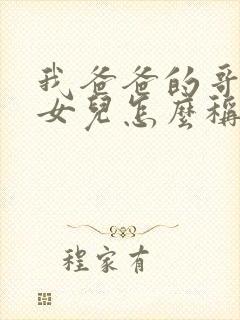 我爸爸的哥
女兒怎麼稱
程家有